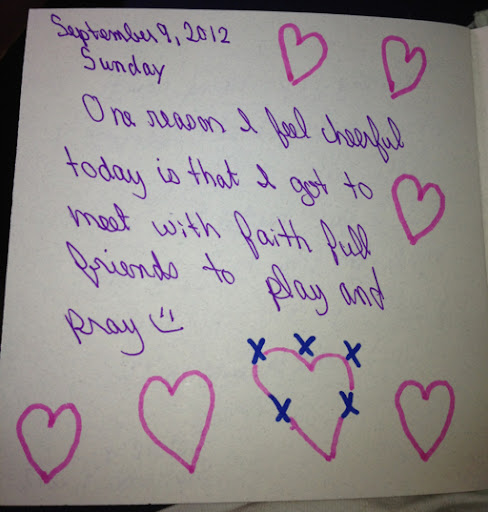 September 9, 2012
Sunday
One reason I feel cheerful
today is that I got to
meet with faith full
friends to play and
pray
X X X
X X